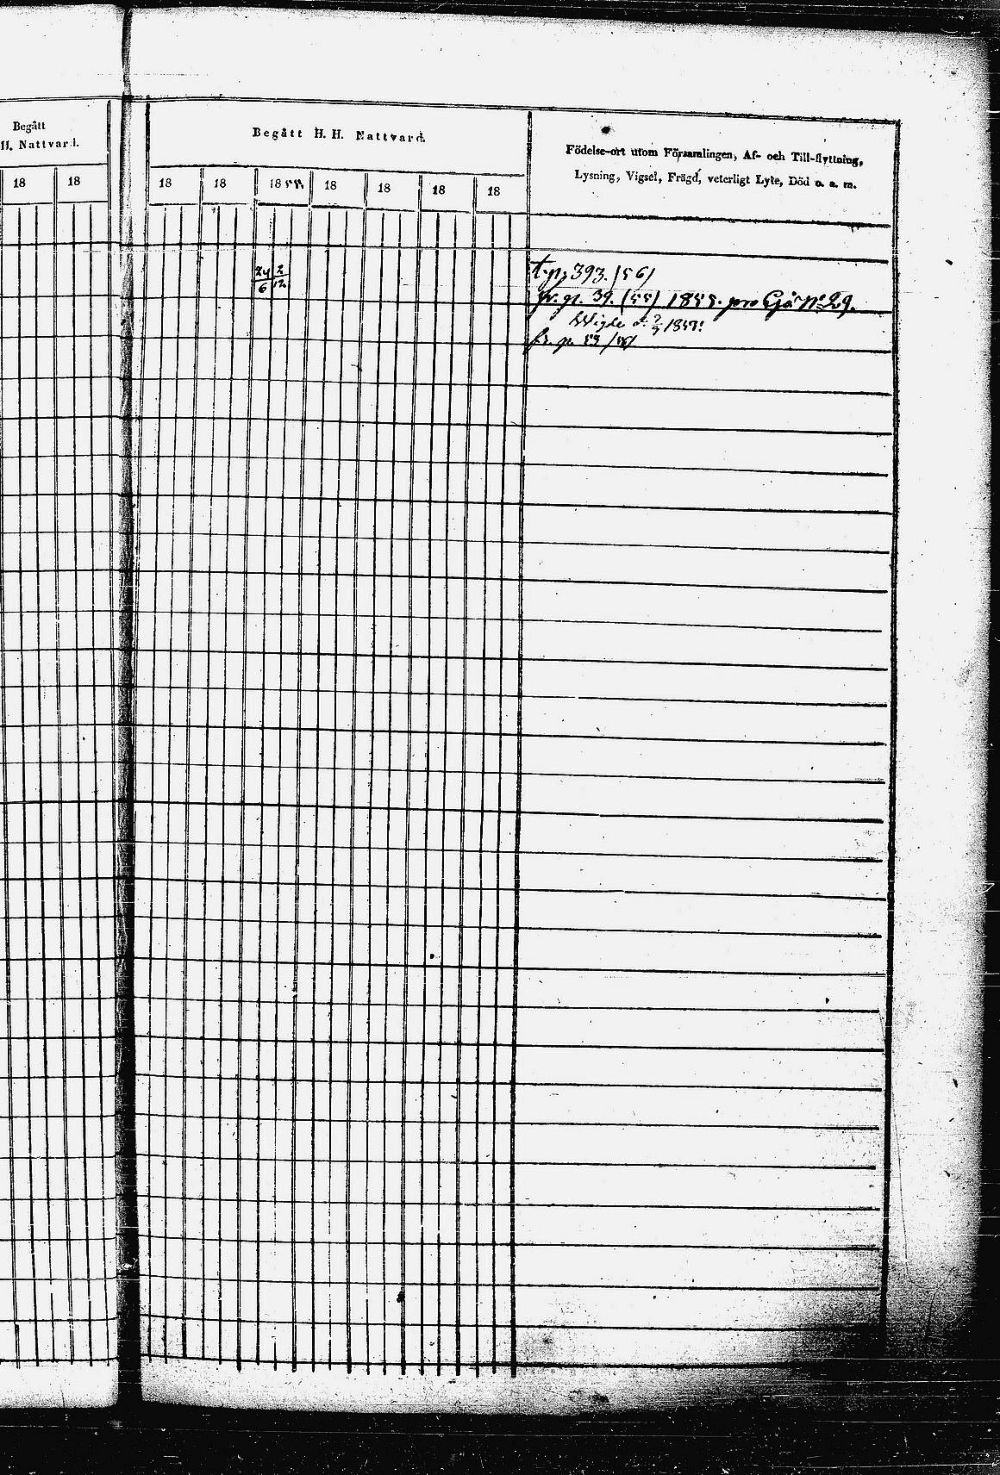 Begått
H. Nattvard.
18 18
Begått H. H. Nattvard.
18 18 1855. 18 18 18 18
Födelse-ort utom Församlingen, Af- och Till-flyttning,
Lysning, Vigsel, Frägd, veterligt Lyte, Död o. a. m.
24 2
6 12
t. p. 393. (56)
fr. p. 39. (55) 1855. pro No 29.
Wigde d. 1855.
fr. p. 53